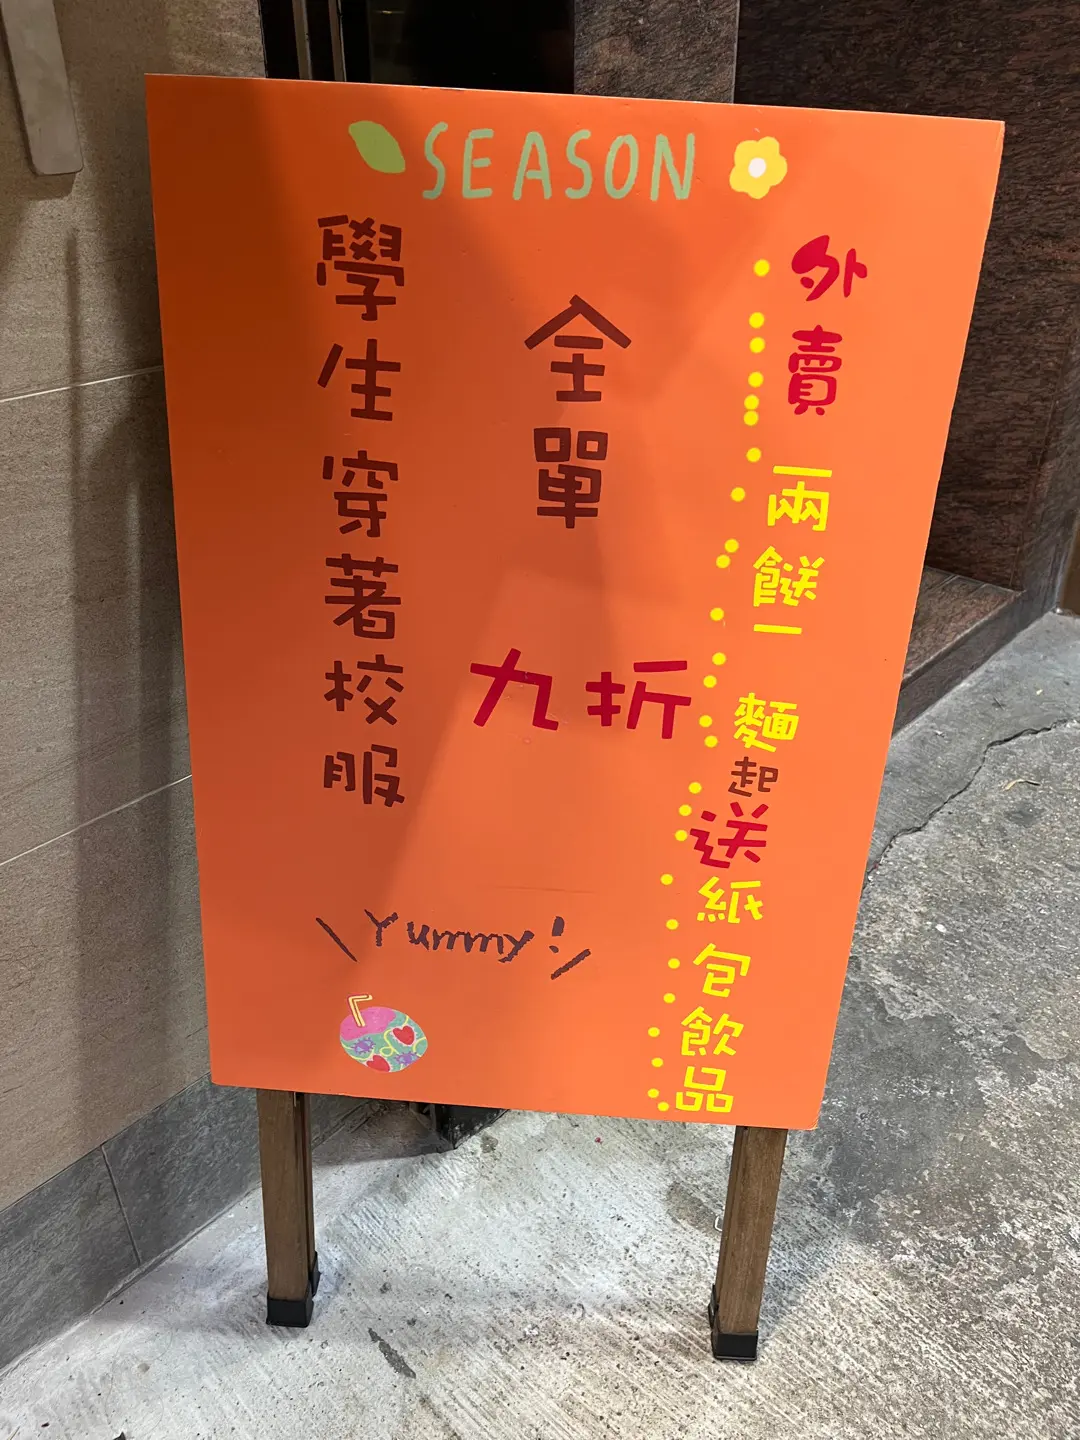 SEASON
學生穿著校服
全單
九折
外賣兩餸一麵起送紙包飲品
\ Yummy! /